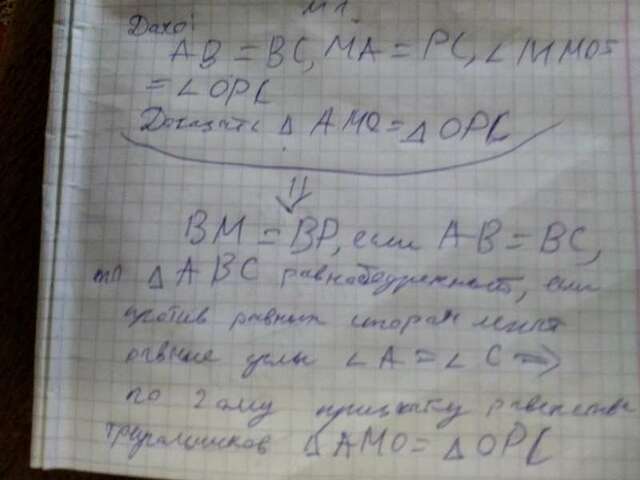 №1.
Дано:
AB = BC, MA = PC, ∠ MMO =
= ∠ OPC
Доказать Δ AMO = Δ OPC
⇓
BM = BP, если AB = BC,
то Δ ABC равнобедренный, если
против равных сторон лежат
равные углы ∠ A = ∠ C ⇒
по 2 ому признаку равенства
треугольников Δ AMO = Δ OPC